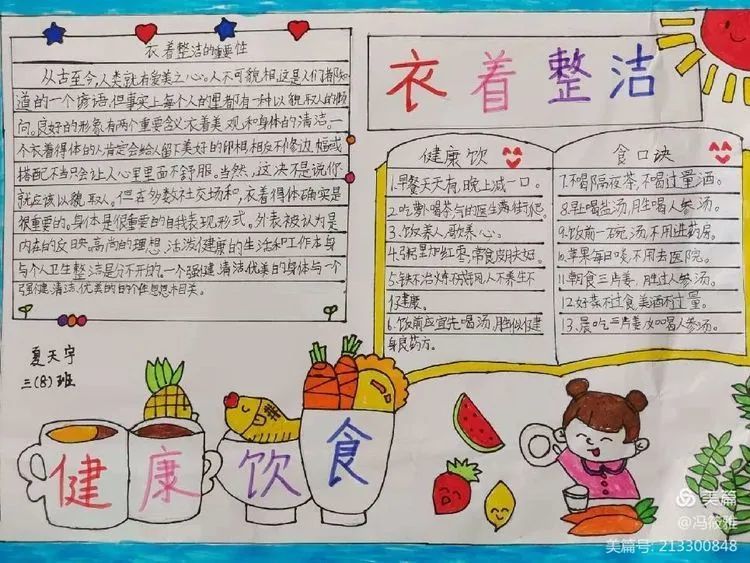 衣着整洁的重要性
从古至今,人类就有爱美之心。人不可貌相,这是人们都知
道的一个谚语,但事实上每个人的里都有一种以貌取人的倾
向。良好的形象有两个重要含义:衣着美观和身体的清洁。一
个衣着得体的人肯定会给人留下美好的印相,相反不修边幅或
搭配不当只会让人心里里面不舒服。当然,这决不是说你
就应该以貌取人。但在多数社交场和,衣着得体确实是
很重要的。身体是很重要的自我表现形式。外表被认为是
内在的反映。高尚的理想、活泼健康的生活和工作本身
与个人卫生整洁是分不开的。一个强健、清洁、优美的身体与一个
强健、清洁、优美的
夏天宇
三(8)班
衣着整洁
健康饮
1.早餐天天有,晚上减一口。
2.吃萝卜喝茶气的医生满街爬。
3.饮养人,歌养心。
4.粥里加红枣,常食皮肤好。
5.铁不冶炼
健康。
6.饭前应宜先喝汤,胜似健
身良药方。
食口诀
7.不喝隔夜茶,不喝过量酒。
8.早喝盐汤,胜喝人参汤。
9.饭前一碗汤不用进药房。
10.苹果每日啖,不用去医院。
11.朝食三片姜,胜过人参汤。
12.好菜不过食,美酒不过量。
13.晨吃三片姜,如喝人参汤。
健康饮食
美篇
@冯筱雅
美篇号: 213300848